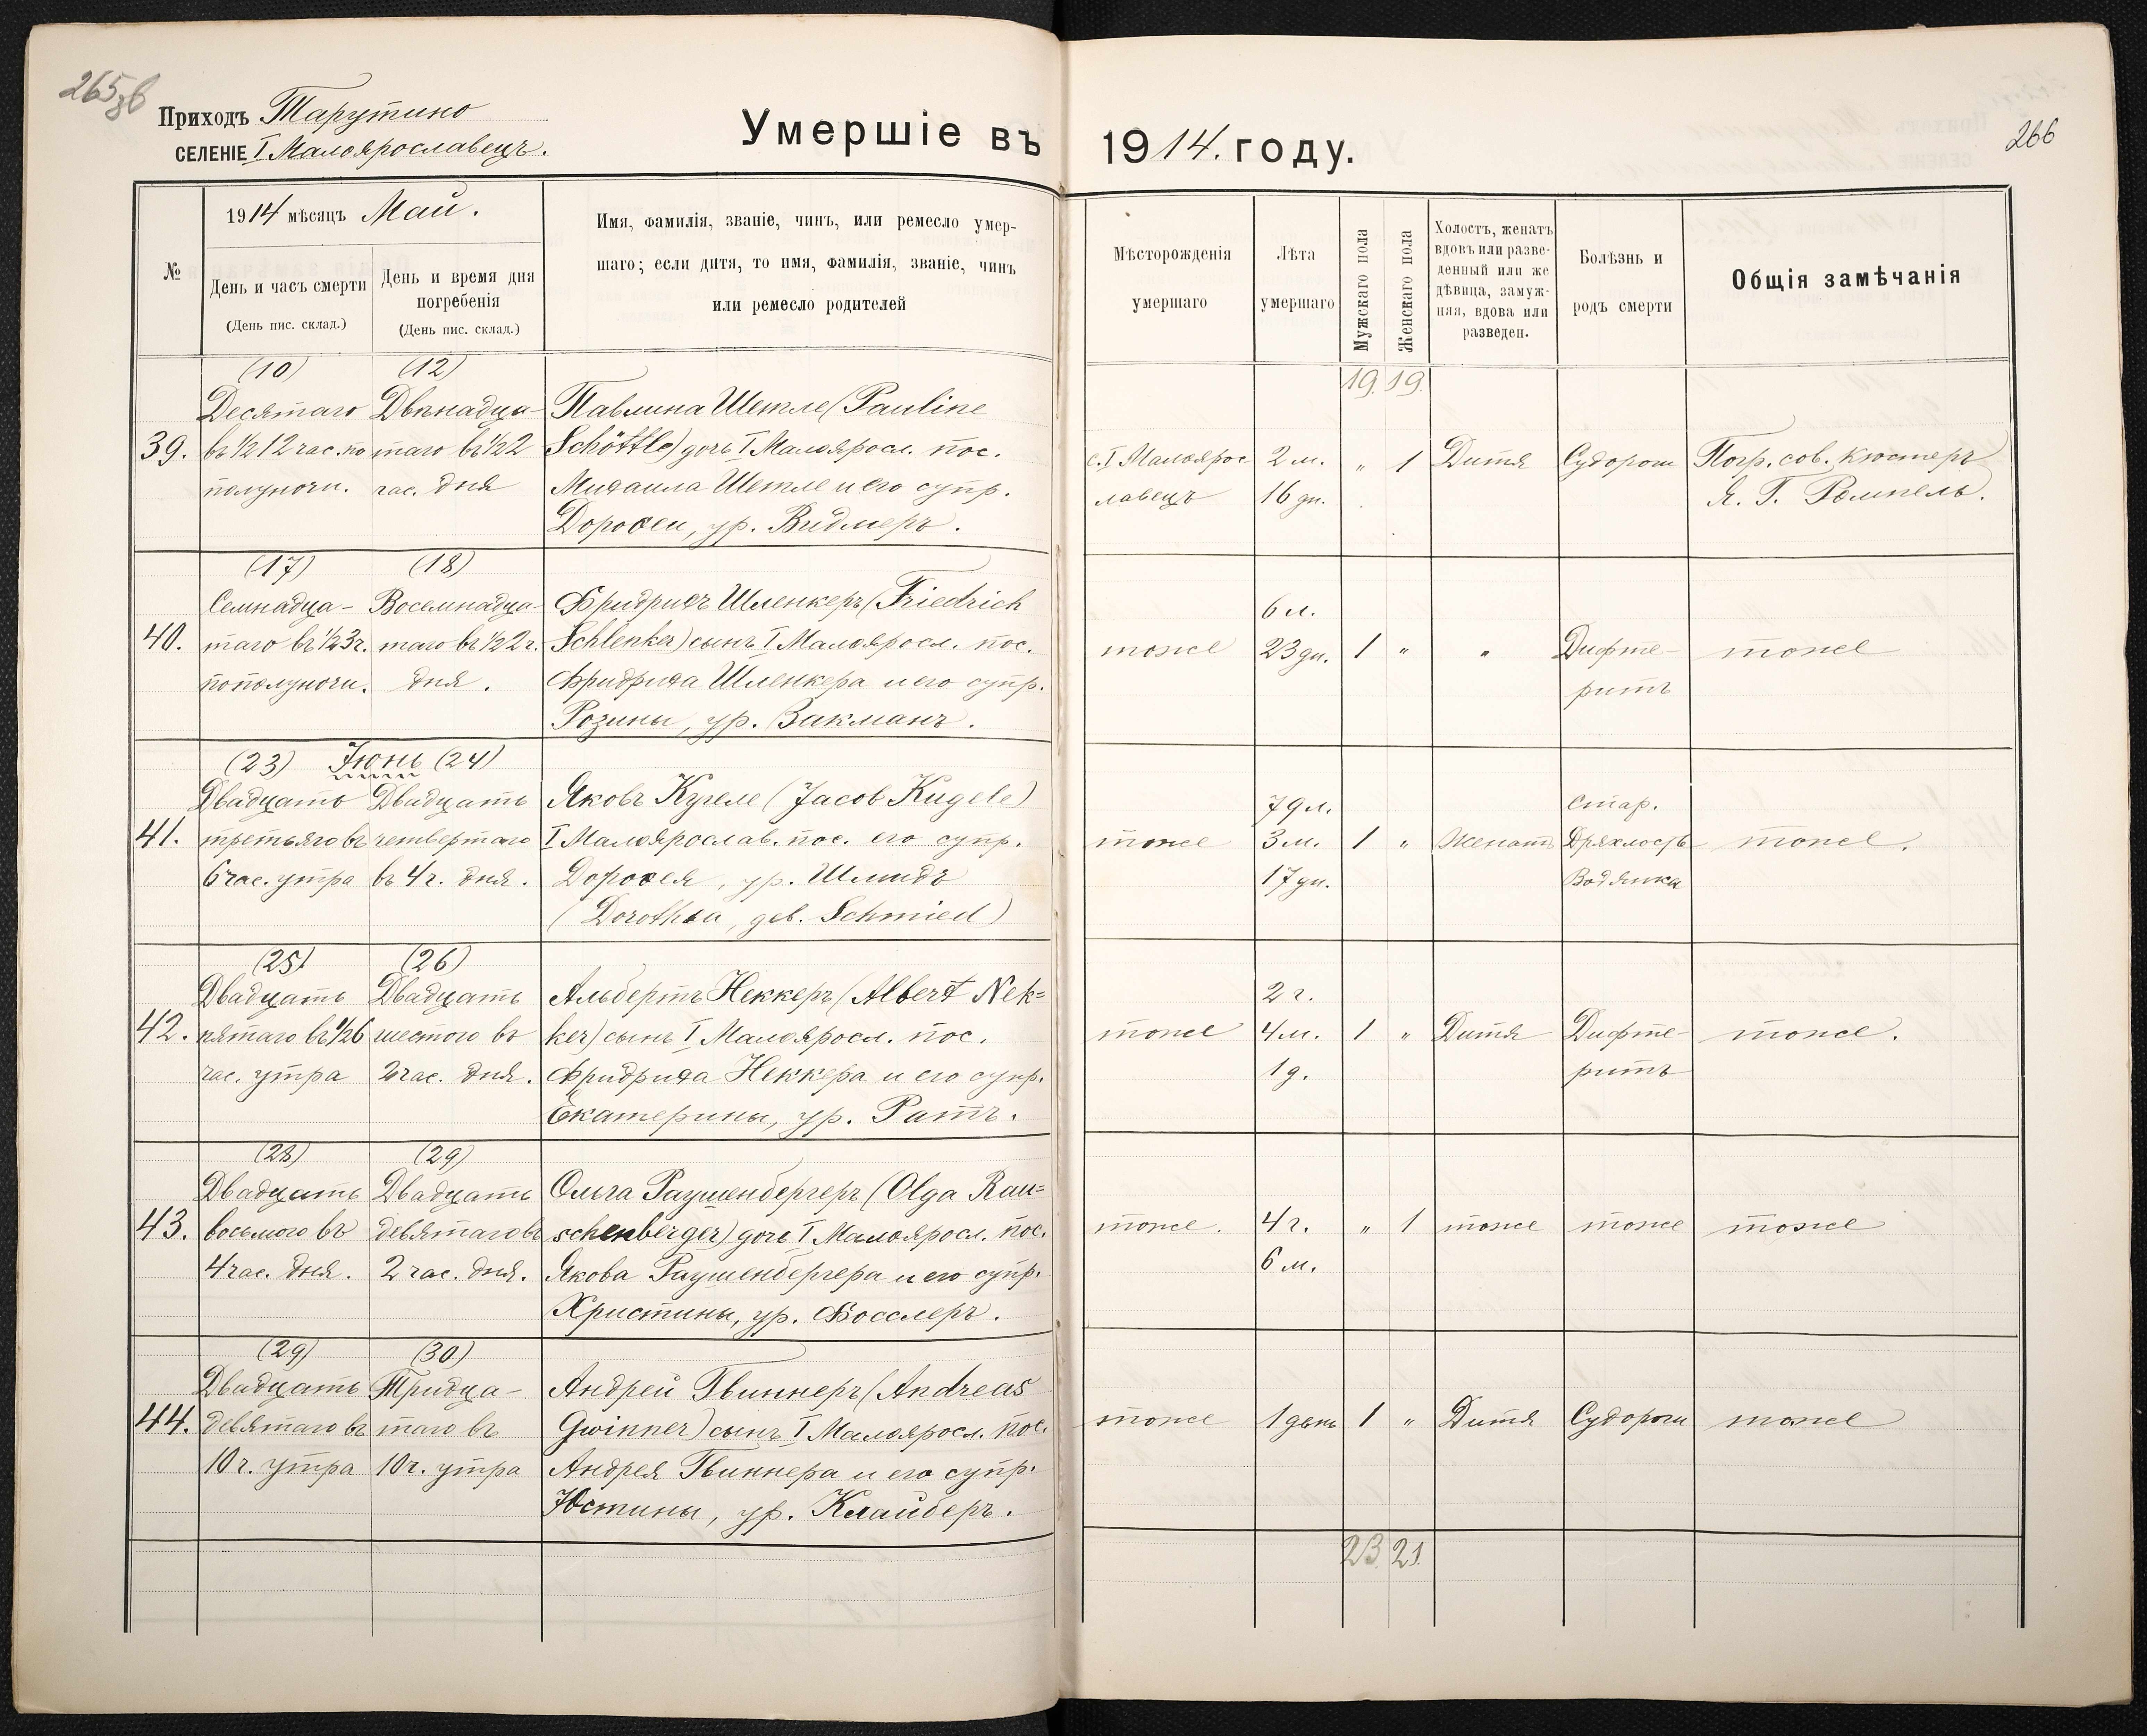 265 об
266
Приходъ Тарутино
СЕЛЕНІЕ I Малоярославецъ.
Умершіе въ 1914. году.
№
1914 мѣсяцъ Май.
День и часъ смерти
(День пис. склад.)
День и время дня
погребенія
(День пис. склад.)
Имя, фамилія, званіе, чинъ, или ремесло умер-
шаго; если дитя, то имя, фамилія, званіе, чинъ
или ремесло родителей
Мѣсторожденія
умершаго
Лѣта
умершаго
Мужскаго пола
Женскаго пола
Холостъ, женатъ
вдовъ или разве-
денный или же
дѣвица, замуж-
няя, вдова или
разведен.
Болѣзнь и
родъ смерти
Общія замѣчанія
19. 19.
39.
(10)
Десятаго
въ ½12 час. по
полуночи.
(12)
Двѣнадца-
таго въ ½2
час. дня
Павлина Шетле (Pauline
Schöttle) дочь I Малояросл. пос.
Михаила Шетле и его супр.
Доротеи, ур. Видмеръ.
с. I Малояро
славецъ
2 м.
16 дн.
„ 1
Дитя
Судороги
Погр. сов. кюстеръ
Я. Г. Ремпель.
40.
(17)
Семнадца-
таго въ ½3 ч.
пополуночи.
(18)
Восемнадца-
таго въ ½2 ч.
дня.
Фридрихъ Шленкеръ (Friedrich
Schlenker) сынъ I Малояросл. пос.
Фридриха Шленкера и его супр.
Розины, ур. Закманъ.
тоже
6 л.
23 дн.
1 „
„
Дифте-
ритъ
тоже
Іюнь
41.
(23)
Двадцать
третьяго въ
6 час. утра
(24)
Двадцать
четвертаго
въ 4 ч. дня.
Яковъ Кугеле (Jacob Kugele)
I Малоярослав. пос. его супр.
Доротея, ур. Шмидъ
(Dorothea, geb. Schmied)
тоже
79 л.
3 м.
17 дн.
1 „
Женатъ
стар.
Дряхлость
Водянка
тоже.
42.
(25)
Двадцать
пятаго въ ½6
час. утра
(26)
Двадцать
шестого въ
2 час. дня.
Альбертъ Неккеръ (Albert Nek=
ker) сынъ I Малояросл. пос.
Фридриха Неккера и его супр.
Екатерины, ур. Ратъ.
тоже
2 г.
4 м.
1 д.
1 „
Дитя
Дифте-
ритъ
тоже.
43.
(28)
Двадцать
восьмого въ
4 час. дня.
(29)
Двадцать
девятаго въ
2 час. дня.
Ольга Раушенбергеръ (Olga Rau=
schenberger) дочь I Малояросл. пос.
Якова Раушенбергера и его супр.
Христины, ур. Фосслеръ.
тоже.
4 г.
6 м.
„ 1
тоже
тоже
тоже
44.
(29)
Двадцать
девятаго въ
10 ч. утра
(30)
Тридца-
таго въ
10 ч. утра
Андрей Гвиннеръ (Andreas
Gwinner) сынъ I Малояросл. пос.
Андрея Гвиннера и его супр.
Юстины, ур. Клайберъ.
тоже
1 день
1 „
Дитя
Судороги
тоже
23. 21.